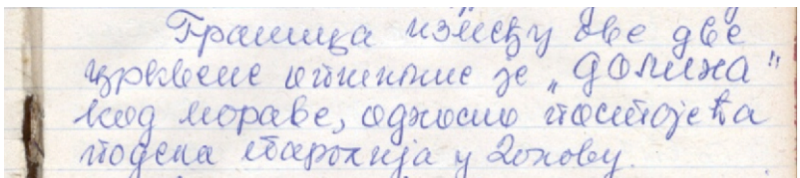 Граница између ове две
црквене општине је „ДОЛИНА"
код Мораве, односно постојећа
подела парохија у Доњову.